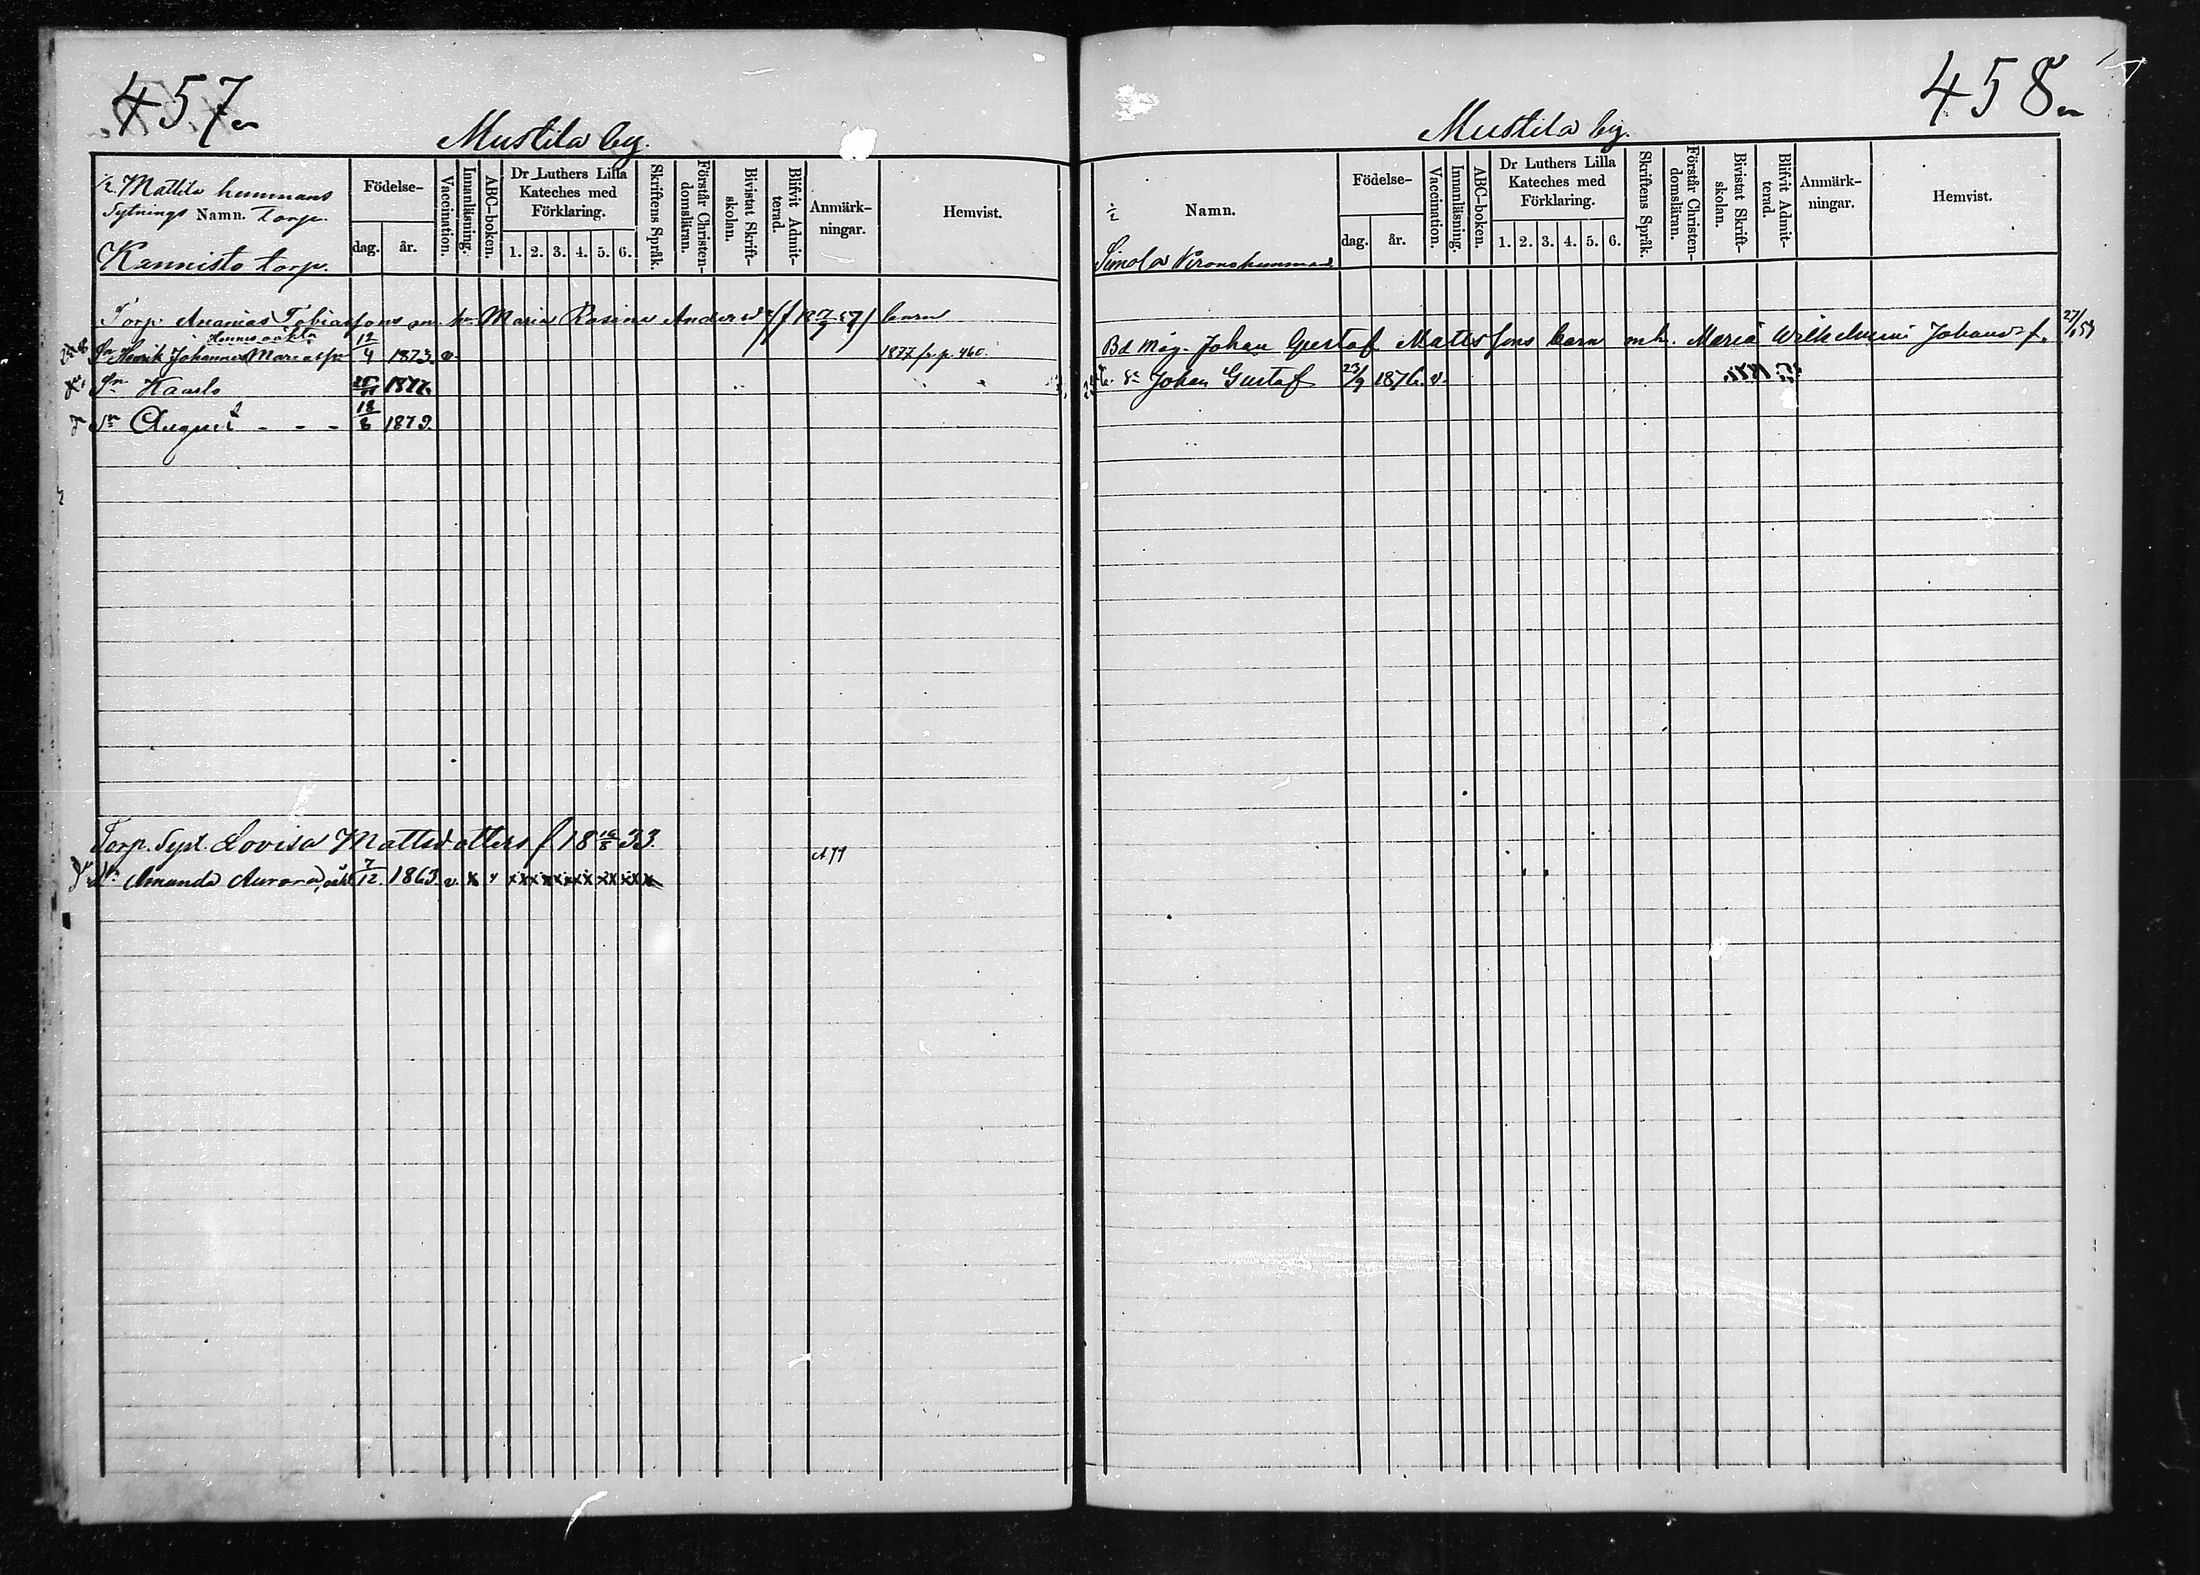 457
Mustila by.
½ Mattila hemmans
Sytnings Namn. torp.
Kannisto torp.
Födelse-
dag. år.
Vaccination.
Innanläsning.
ABC-boken.
Dr Luthers Lilla
Kateches med
Förklaring.
1. 2. 3. 4. 5. 6.
Skriftens Språk.
Förstår Christen-
domsläran.
Bivistat Skrift-
skolan.
Blifvit Admit-
terad.
Anmärk-
ningar.
Hemvist.
Torp. Ananias Tobiassons m. h. Maria Rosina Andersd. barn
Hennes oäkta
Sn Henrik Johannes Mariasson 12/4 1873. v. 1877 fr. p. 460.
Sn Kaarlo 1877.
Sn August - - - 18/8 1879.
Torp. Syt. Lovisa Mattsdotters f 18 16/8 33.
Dr Amanda Aurora, oäkt. 7/12 1863. v. x
458
Mustila by.
½
Namn.
Simola Kronohemman
Födelse-
dag. år.
Vaccination.
Innanläsning.
ABC-boken.
Dr Luthers Lilla
Kateches med
Förklaring.
1. 2. 3. 4. 5. 6.
Skriftens Språk.
Förstår Christen-
domsläran.
Bivistat Skrift-
skolan.
Blifvit Admit-
terad.
Anmärk-
ningar.
Hemvist.
Bd Måg. Johan Gustaf Mattssons barn mh. Maria Wilhelmina Johansd. f.
Sn Johan Gustaf 23/9 1876. v.